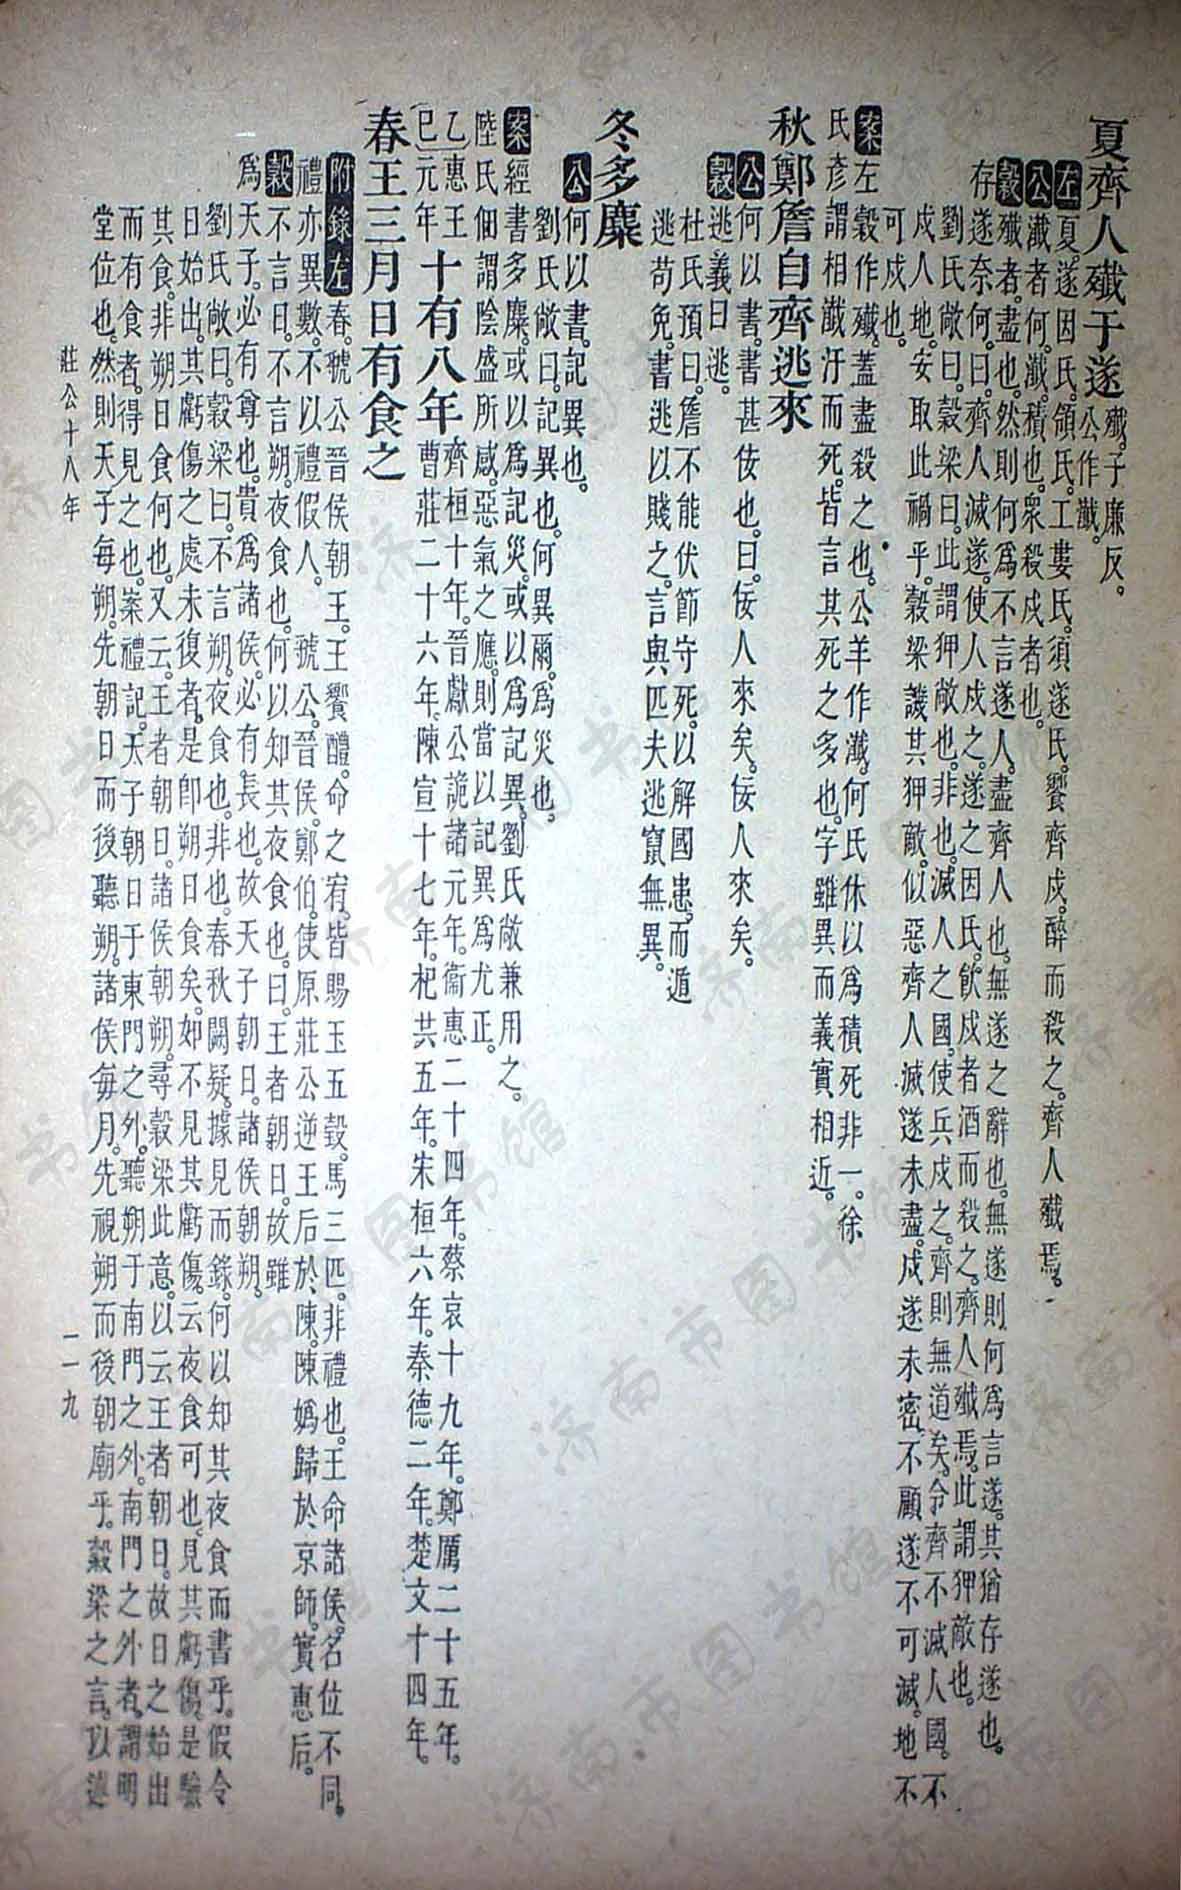 夏齊人殲于遂殲。子廉反。
公作瀸。
左夏。遂因氏。領氏。工婁氏。須遂氏。饗齊戍。醉而殺之。齊人殲焉。
公瀸者何。瀸。積也。衆殺戍者也。
穀殲者。盡也。然則何爲不言遂人盡齊人也。無遂之辭也。無遂則何爲言遂。其猶存遂也。
存遂奈何。曰。齊人滅遂。使人戍之。遂之因氏。飲戍者酒而殺之。齊人殲焉。此謂狎敵也。
劉氏敞曰。穀梁曰。此謂狎敵也。非也。滅人之國。使兵戍之。齊則無道矣。令齊不滅人國。不
戍人地。安取此禍乎。穀梁譏其狎敵。似惡齊人滅遂未盡。戍遂未密。不顧遂不可滅。地不
可戍也。
案左穀作殲。蓋盡殺之也。公羊作瀸。何氏休以爲積死非一。徐
氏彦謂相瀸汙而死。皆言其死之多也。字雖異而義實相近。
秋鄭詹自齊逃來
公何以書。書甚佞也。曰。佞人來矣。佞人來矣。
穀逃義曰逃。
杜氏預曰。詹不能伏節守死。以解國患。而遁
逃苟免。書逃以賤之。言與匹夫逃竄無異。
冬多麋
公何以書。記異也。
劉氏敞曰。記異也。何異爾。爲災也。
案經書多麋。或以爲記災。或以爲記異。劉氏敞兼用之。
陸氏佃謂陰盛所感。惡氣之應。則當以記異爲尤正。
乙惠王
巳元年十有八年齊桓十年。晉獻公詭諸元年。衞惠二十四年。蔡哀十九年。鄭厲二十五年。
曹莊二十六年。陳宣十七年。杞共五年。宋桓六年。秦德二年。楚文十四年。
春王三月日有食之
附錄左春。虢公晉侯朝王。王饗醴。命之宥。皆賜玉五瑴。馬三匹。非禮也。王命諸侯。名位不同。
禮亦異數。不以禮假人。 虢公。晉侯。鄭伯。使原莊公逆王后於陳。陳媯歸於京師。實惠后。
穀不言日。不言朔。夜食也。何以知其夜食也。曰。王者朝日。故雖
爲天子。必有尊也。貴爲諸侯。必有長也。故天子朝日。諸侯朝朔。
劉氏敞曰。穀梁曰。不言朔。夜食也。非也。春秋闕疑。據見而錄。何以知其夜食而書乎。假令
日始出。其虧傷之處未復者。是卽朔日食矣。如不見其虧傷。云夜食可也。見其虧傷。是驗
其食。非朔日食何也。又云。王者朝日。諸侯朝朔。尋穀梁此意。以云王者朝日。故日之始出
而有食者。得見之也。案禮記。天子朝日于東門之外。聽朔于南門之外。南門之外者。謂明
堂位也。然則天子每朔。先朝日而後聽朔。諸侯每月。先視朔而後朝廟乎。穀梁之言。以遠
莊公十八年 一一九